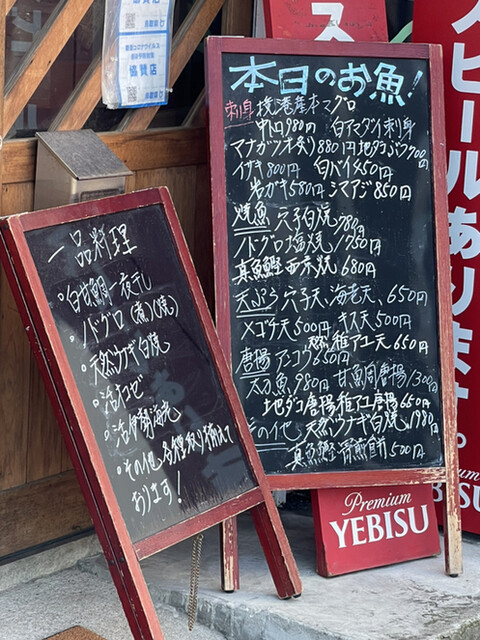 本日のお魚!
刺身 境港産本マグロ
中トロ980円 白アマダイ刺身
マナガツオ炙り880円 地タコぶつ700円
イサキ800円 白バイ450円
岩ガキ580円 シマアジ850円
焼魚 穴子白焼780円
ノドグロ塩焼1750円
真魚鰹西京焼680円
天ぷら 穴子天、海老天、650円
メゴチ天500円 キス天500円
天然稚アユ天650円
唐揚 アンコウ650円
太刀魚980円 甘魚同唐揚1300円
地ダコ唐揚 稚アユ唐揚650円
その他 天然ウナギ白焼1980円
真魚鰹骨煎餅500円
一品料理
・白甘鯛一夜干し
・ノドグロ(煮)(焼)
・天然ウナギ白焼
・活カワハギ
・活伊勢海老
・その他各種取り揃えて
おります!
ス
ビールあります。
Premium
YEBISU
協賛店
協賛店